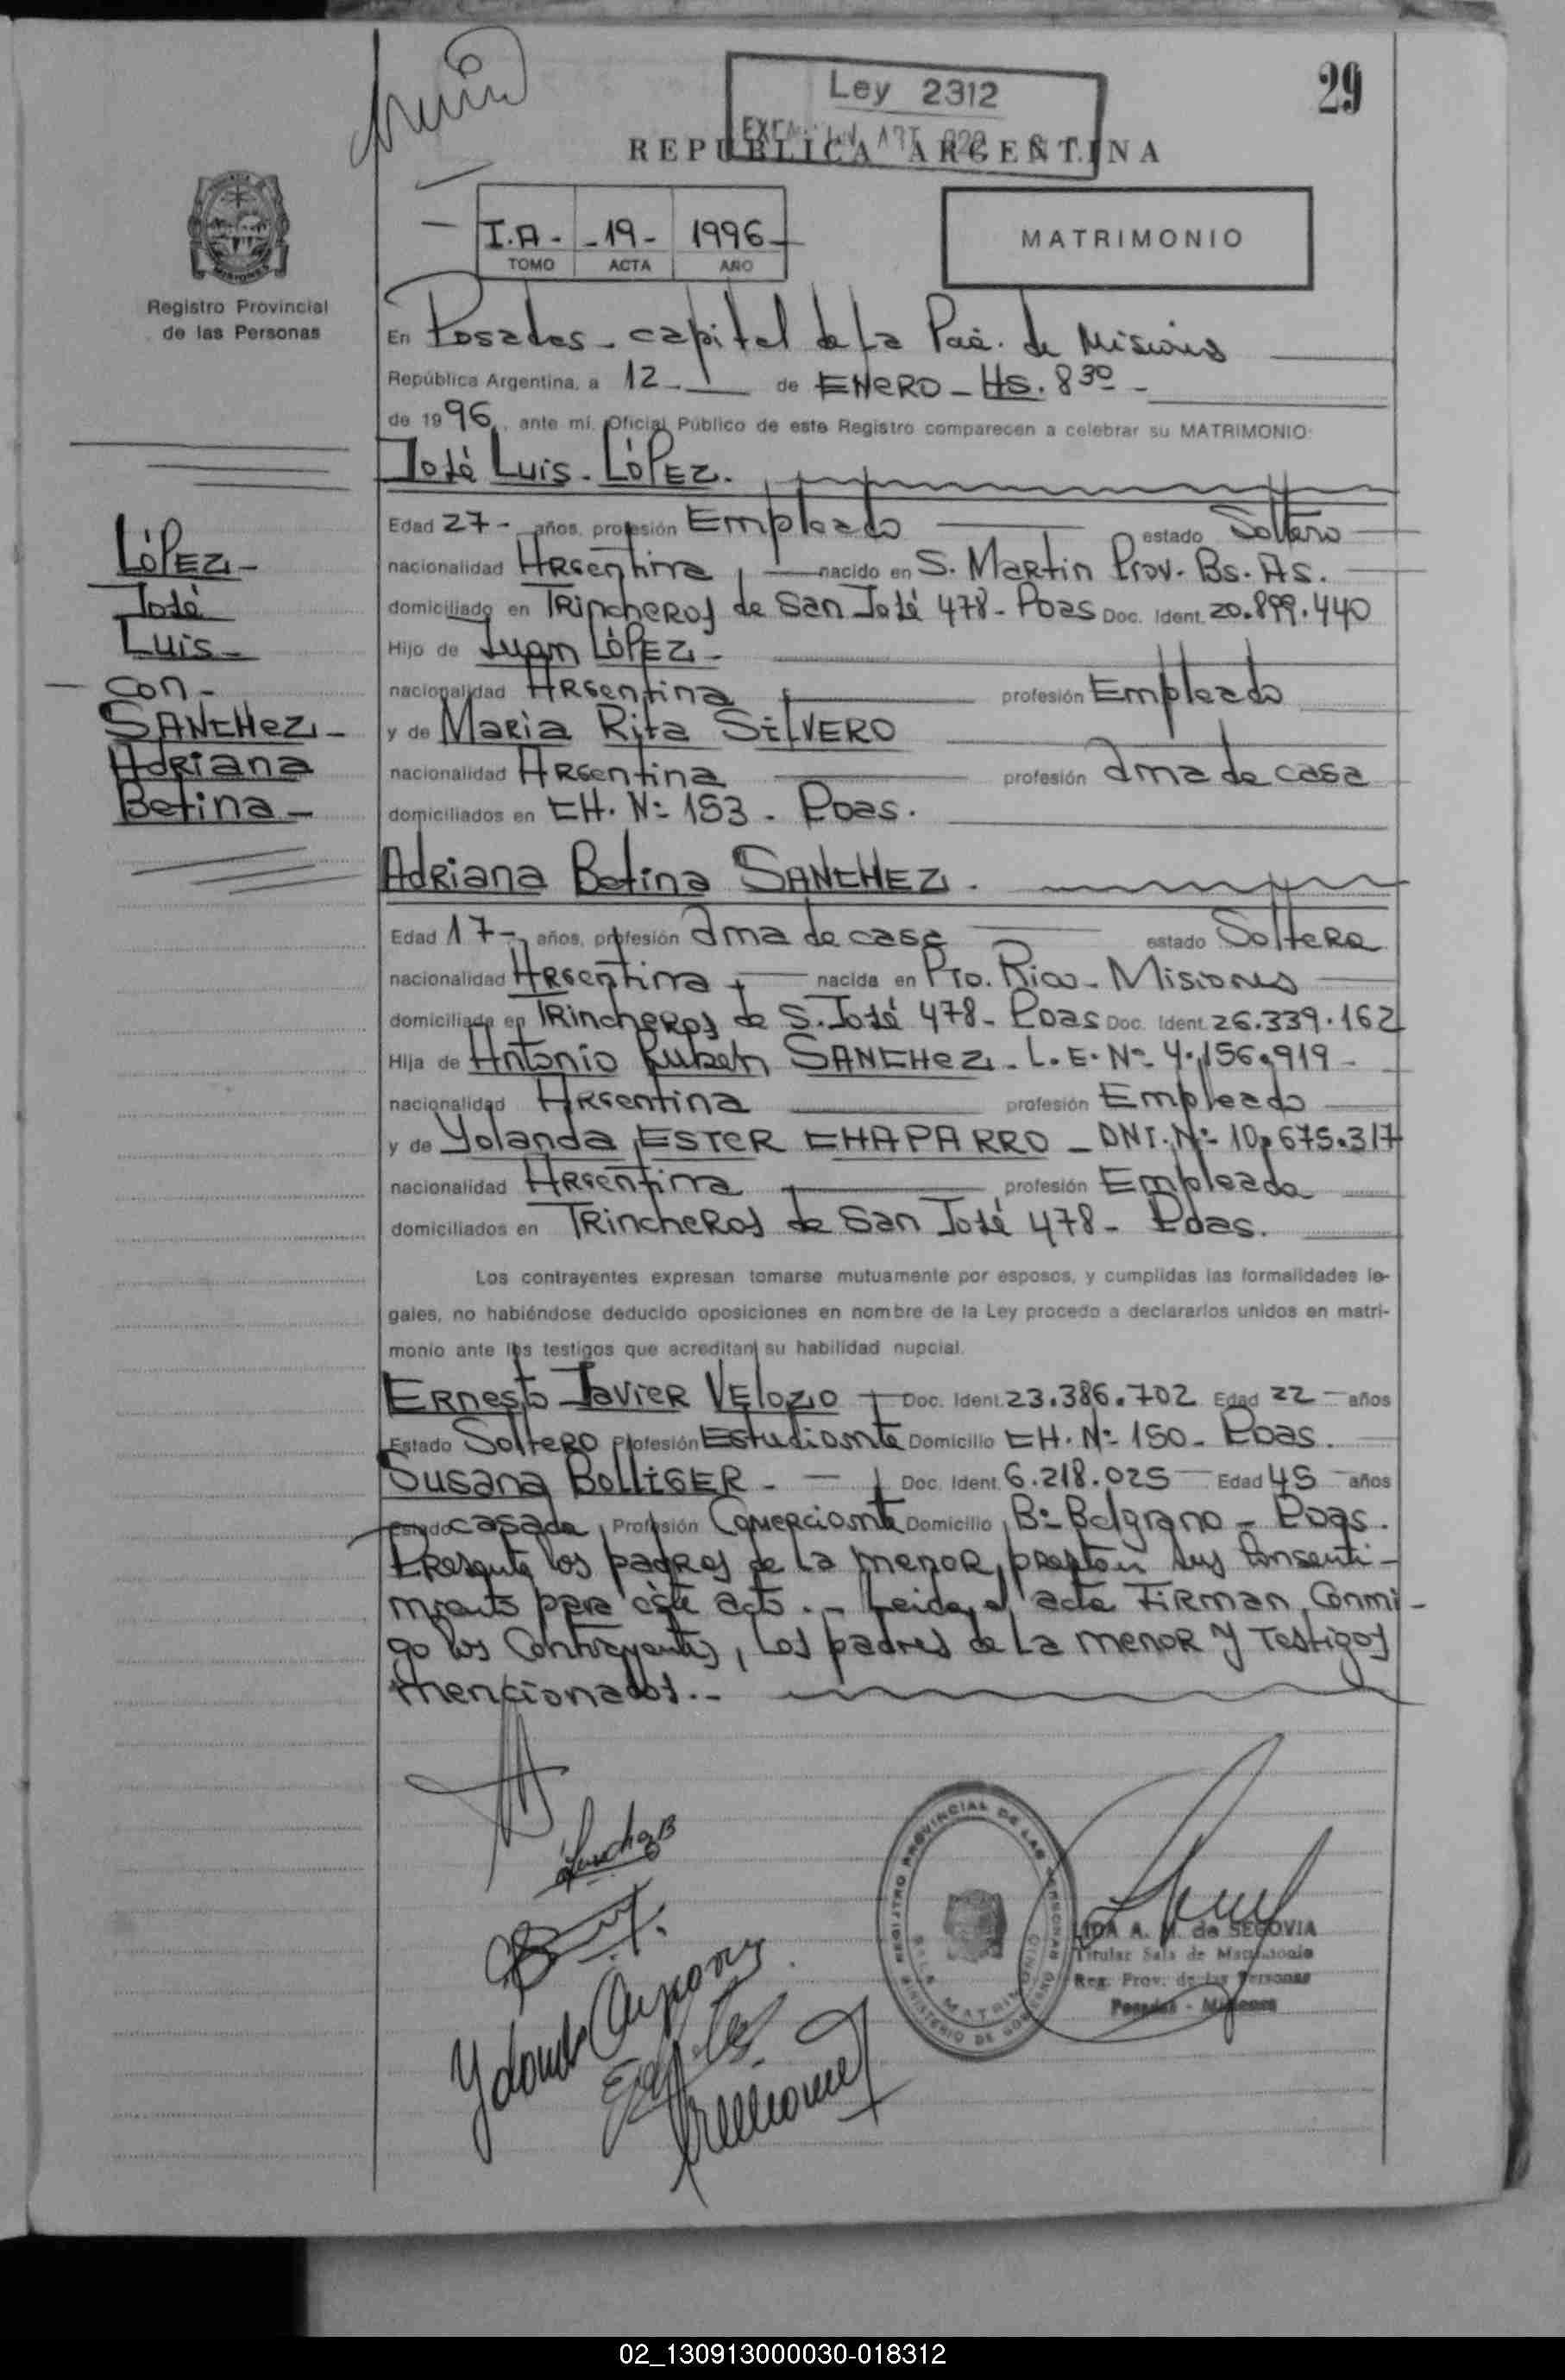 29
Ley 2312
REPUBLICA ARGENTINA
I.A - - 19 - 1996 -
TOMO ACTA AÑO
MATRIMONIO
Registro Provincial
de las Personas
En Posadas - capital de La Pcia. de Misiones
República Argentina, a 12 - de ENERO - Hs. 8 30 -
de 19 96, ante mí, Oficial Público de este Registro comparecen a celebrar su MATRIMONIO:
José Luis - LÓPEZ.
Edad 27 - años, profesión Empleado estado Soltero
nacionalidad Argentina nacido en S. Martin Prov. Bs. As.
domiciliado en Trincheros de San José 478 - Pdas Doc. Ident. 20.899.440
Hijo de Juan LÓPEZ -
nacionalidad Argentina profesión Empleado
y de Maria Rita SILVERO
nacionalidad Argentina profesión Ama de casa
domiciliados en CH. Nº 153 - Pdas.
LÓPEZ -
José
Luis -
- con -
SANCHEZ -
Adriana
Betina -
Adriana Betina SANCHEZ.
Edad 17 - años, profesión Ama de casa estado Soltera
nacionalidad Argentina nacida en Pto. Rico - Misiones
domiciliada en Trincheros de S. José 478 - Pdas Doc. Ident. 26.339.162
Hija de Antonio Ruben SANCHEZ - L.E. Nº 4.156.919 -
nacionalidad Argentina profesión Empleado
y de Yolanda ESTER CHAPARRO - DNI. Nº 10.675.317
nacionalidad Argentina profesión Empleada
domiciliados en Trincheros de San José 478 - Pdas.
Los contrayentes expresan tomarse mutuamente por esposos, y cumplidas las formalidades le-
gales, no habiéndose deducido oposiciones en nombre de la Ley procedo a declararlos unidos en matri-
monio ante los testigos que acreditan su habilidad nupcial.
Ernesto Javier VELOZO Doc. Ident. 23.386.702 Edad 22 - años
Estado Soltero Profesión Estudiante Domicilio CH. Nº 150 - Pdas.
Susana BOLLIGER - Doc. Ident. 6.218.025 Edad 45 años
Estado casada Profesión Comerciante Domicilio Bº Belgrano - Pdas.
Presente los padres de la menor, prestan sus Consenti-
miento para éste acto. - Leida el acta Firman Conmi-
go los Contrayentes, los padres de La menor y Testigos
mencionados. -
Sanchez B
REGISTRO PROVINCIAL DE LAS PERSONAS
MINISTERIO DE GOBIERNO
LIDA A. M. de SEGOVIA
Titular Sala de Matrimonio
Reg. Prov. de las Personas
Posadas - Misiones
02_130913000030-018312